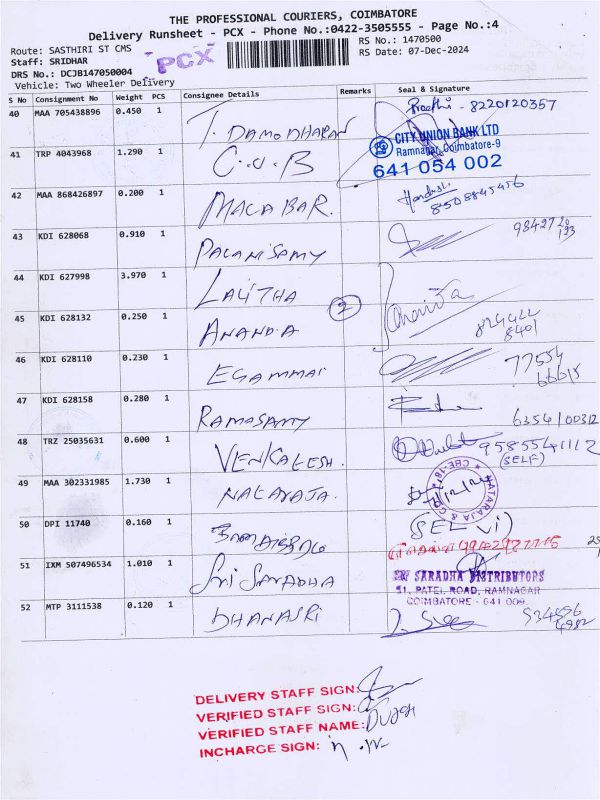 THE PROFESSIONAL COURIERS, COIMBATORE
Delivery Runsheet - PCX - Phone No.:0422-3505555 - Page No.:4
Route: SASTHIRI ST CMS
Staff: SRIDHAR
DRS No.: DCJB147050004
Vehicle: Two Wheeler Delivery
PCX
RS No.: 1470500
RS Date: 07-Dec-2024
S No Consignment No Weight PCS Consignee Details Remarks Seal & Signature
40 MAA 705438896 0.450 1 T. DAMODHARAN Preethi - 8220120357
CITY UNION BANK LTD
Ramnagar, Coimbatore-9
641 054 002
41 TRP 4043968 1.290 1 C.U.B
42 MAA 868426897 0.200 1 MALABAR. 8508845456
43 KDI 628068 0.910 1 PALANISAMY
44 KDI 627998 3.970 1 LALITHA
2
45 KDI 628132 0.250 1 ANANDA
46 KDI 628110 0.230 1 EGAMMAI
47 KDI 628158 0.280 1 RAMASAMY 6354100312
48 TRZ 25035631 0.600 1 VENKATESH. 9585541112
(SELF)
49 MAA 302331985 1.730 1 NATARAJA.
NATARAJA & CO
CBE-18
50 DPI 11740 0.160 1 SELVI
51 IXM 507496534 1.010 1 Sri SARADHA
SARADHA DISTRIBUTORS
51, PATEL ROAD, RAMNAGAR
COIMBATORE - 641 009
52 MTP 3111538 0.120 1 DHANASRI
DELIVERY STAFF SIGN:
VERIFIED STAFF SIGN:
VERIFIED STAFF NAME:
INCHARGE SIGN: